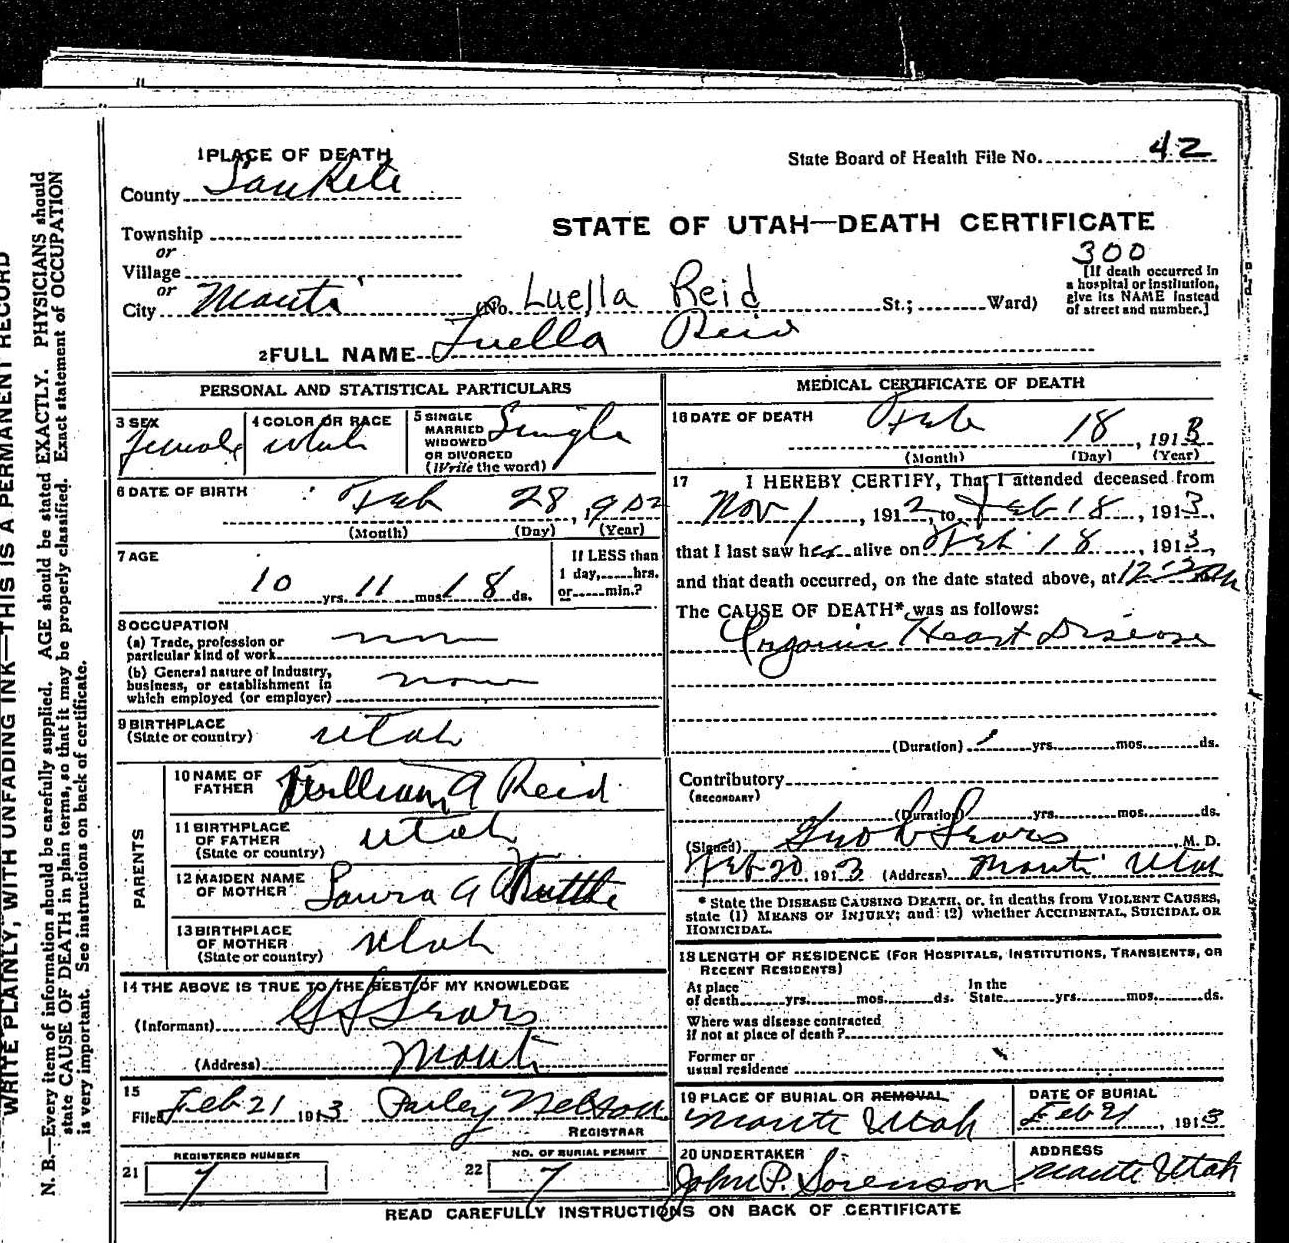 WRITE PLAINLY, WITH UNFADING INK—THIS IS A PERMANENT RECORD
N. B.—Every item of information should be carefully supplied. AGE should be stated EXACTLY. PHYSICIANS should
state CAUSE OF DEATH in plain terms, so that it may be properly classified. Exact statement of OCCUPATION
is very important. See instructions on back of certificate.
1 PLACE OF DEATH
State Board of Health File No. 42
County Sanpete
STATE OF UTAH—DEATH CERTIFICATE
Township
or
300
Village
or
[If death occurred in
a hospital or institution,
give its NAME instead
of street and number.]
City Manti (No. Luella Reid St.; Ward)
2 FULL NAME Luella Reid
PERSONAL AND STATISTICAL PARTICULARS
3 SEX
female
4 COLOR OR RACE
5 SINGLE
MARRIED
WIDOWED
OR DIVORCED
(Write the word)
Single
6 DATE OF BIRTH
Feb 28, 1902
(Month) (Day) (Year)
7 AGE
10 yrs. 11 mos. 18 ds.
If LESS than
1 day, hrs.
or min.?
8 OCCUPATION
(a) Trade, profession or
particular kind of work
(b) General nature of industry,
business, or establishment in
which employed (or employer)
9 BIRTHPLACE
(State or country) Utah
PARENTS
10 NAME OF
FATHER William A Reid
11 BIRTHPLACE
OF FATHER
(State or country) Utah
12 MAIDEN NAME
OF MOTHER Laura A Tuttle
13 BIRTHPLACE
OF MOTHER
(State or country) Utah
14 THE ABOVE IS TRUE TO THE BEST OF MY KNOWLEDGE
(Informant) G L Sears
(Address) Manti
15
Filed Feb 21 1913 Parley Nelson
REGISTRAR
21 REGISTERED NUMBER 7
22 NO. OF BURIAL PERMIT 7
MEDICAL CERTIFICATE OF DEATH
16 DATE OF DEATH
Feb 18, 1913
(Month) (Day) (Year)
17 I HEREBY CERTIFY, That I attended deceased from
Nov 1, 1912, to Feb 18, 1913,
that I last saw her alive on Feb 18, 1913,
and that death occurred, on the date stated above, at
The CAUSE OF DEATH* was as follows:
Organic Heart Disease
(Duration) 1 yrs. mos. ds.
Contributory
(SECONDARY)
(Duration) yrs. mos. ds.
(Signed) Sears, M. D.
Feb 20 1913 (Address) Manti Utah
* State the DISEASE CAUSING DEATH, or, in deaths from VIOLENT CAUSES,
state (1) MEANS OF INJURY; and (2) whether ACCIDENTAL, SUICIDAL OR
HOMICIDAL.
18 LENGTH OF RESIDENCE (FOR HOSPITALS, INSTITUTIONS, TRANSIENTS, OR
RECENT RESIDENTS)
At place
of death yrs. mos. ds.
In the
State yrs. mos. ds.
Where was disease contracted
if not at place of death?
Former or
usual residence
19 PLACE OF BURIAL OR REMOVAL
Manti Utah
DATE OF BURIAL
Feb 21, 1913
20 UNDERTAKER
John P. Sorenson
ADDRESS
Manti Utah
READ CAREFULLY INSTRUCTIONS ON BACK OF CERTIFICATE